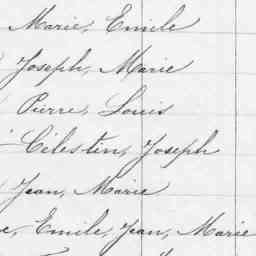 Marie, Emile
Joseph, Marie
Pierre, Louis
Célestin, Joseph
Jean, Marie
Emile, Jean, Marie